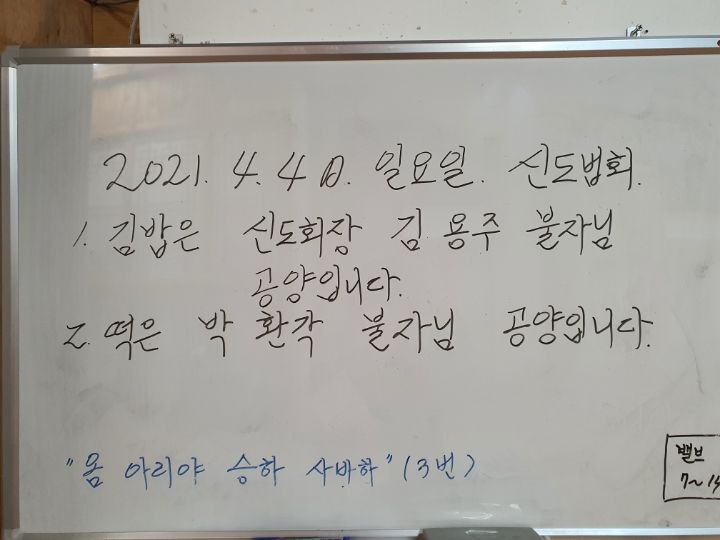 2021. 4. 4 日. 일요일. 신도법회.
1. 김밥은 신도회장 김용주 불자님
공양입니다.
2. 떡은 박환각 불자님 공양입니다.
"옴 아리야 승하 사바하" (3번)
밸브
7~14